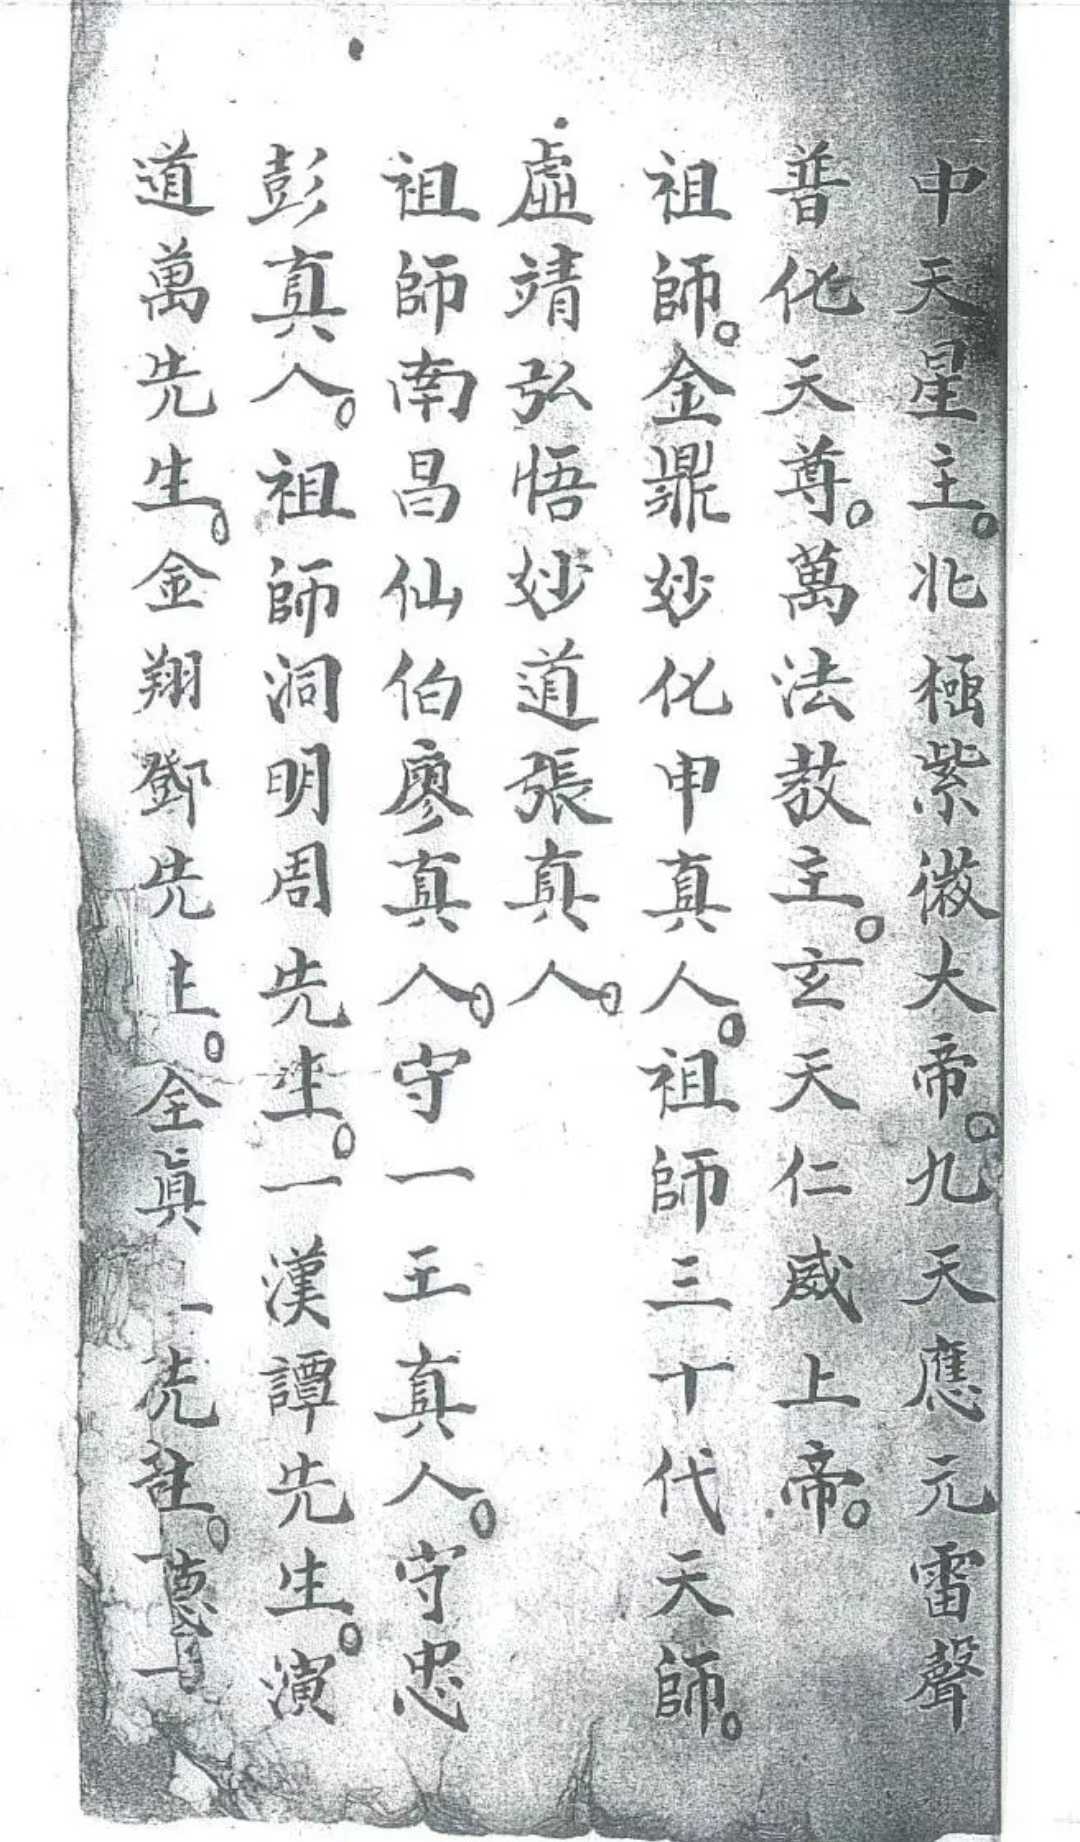 中天星主。北極紫微大帝。九天應元雷聲
普化天尊。萬法教主。玄天仁威上帝。
祖師。金鼎妙化申真人。祖師三十代天師。
虛靖弘悟妙道張真人。
祖師南昌仙伯廖真人。守一王真人。守忠
彭真人。祖師洞明周先生。一漢譚先生。演
道萬先生。金翔鄧先生。全真一先